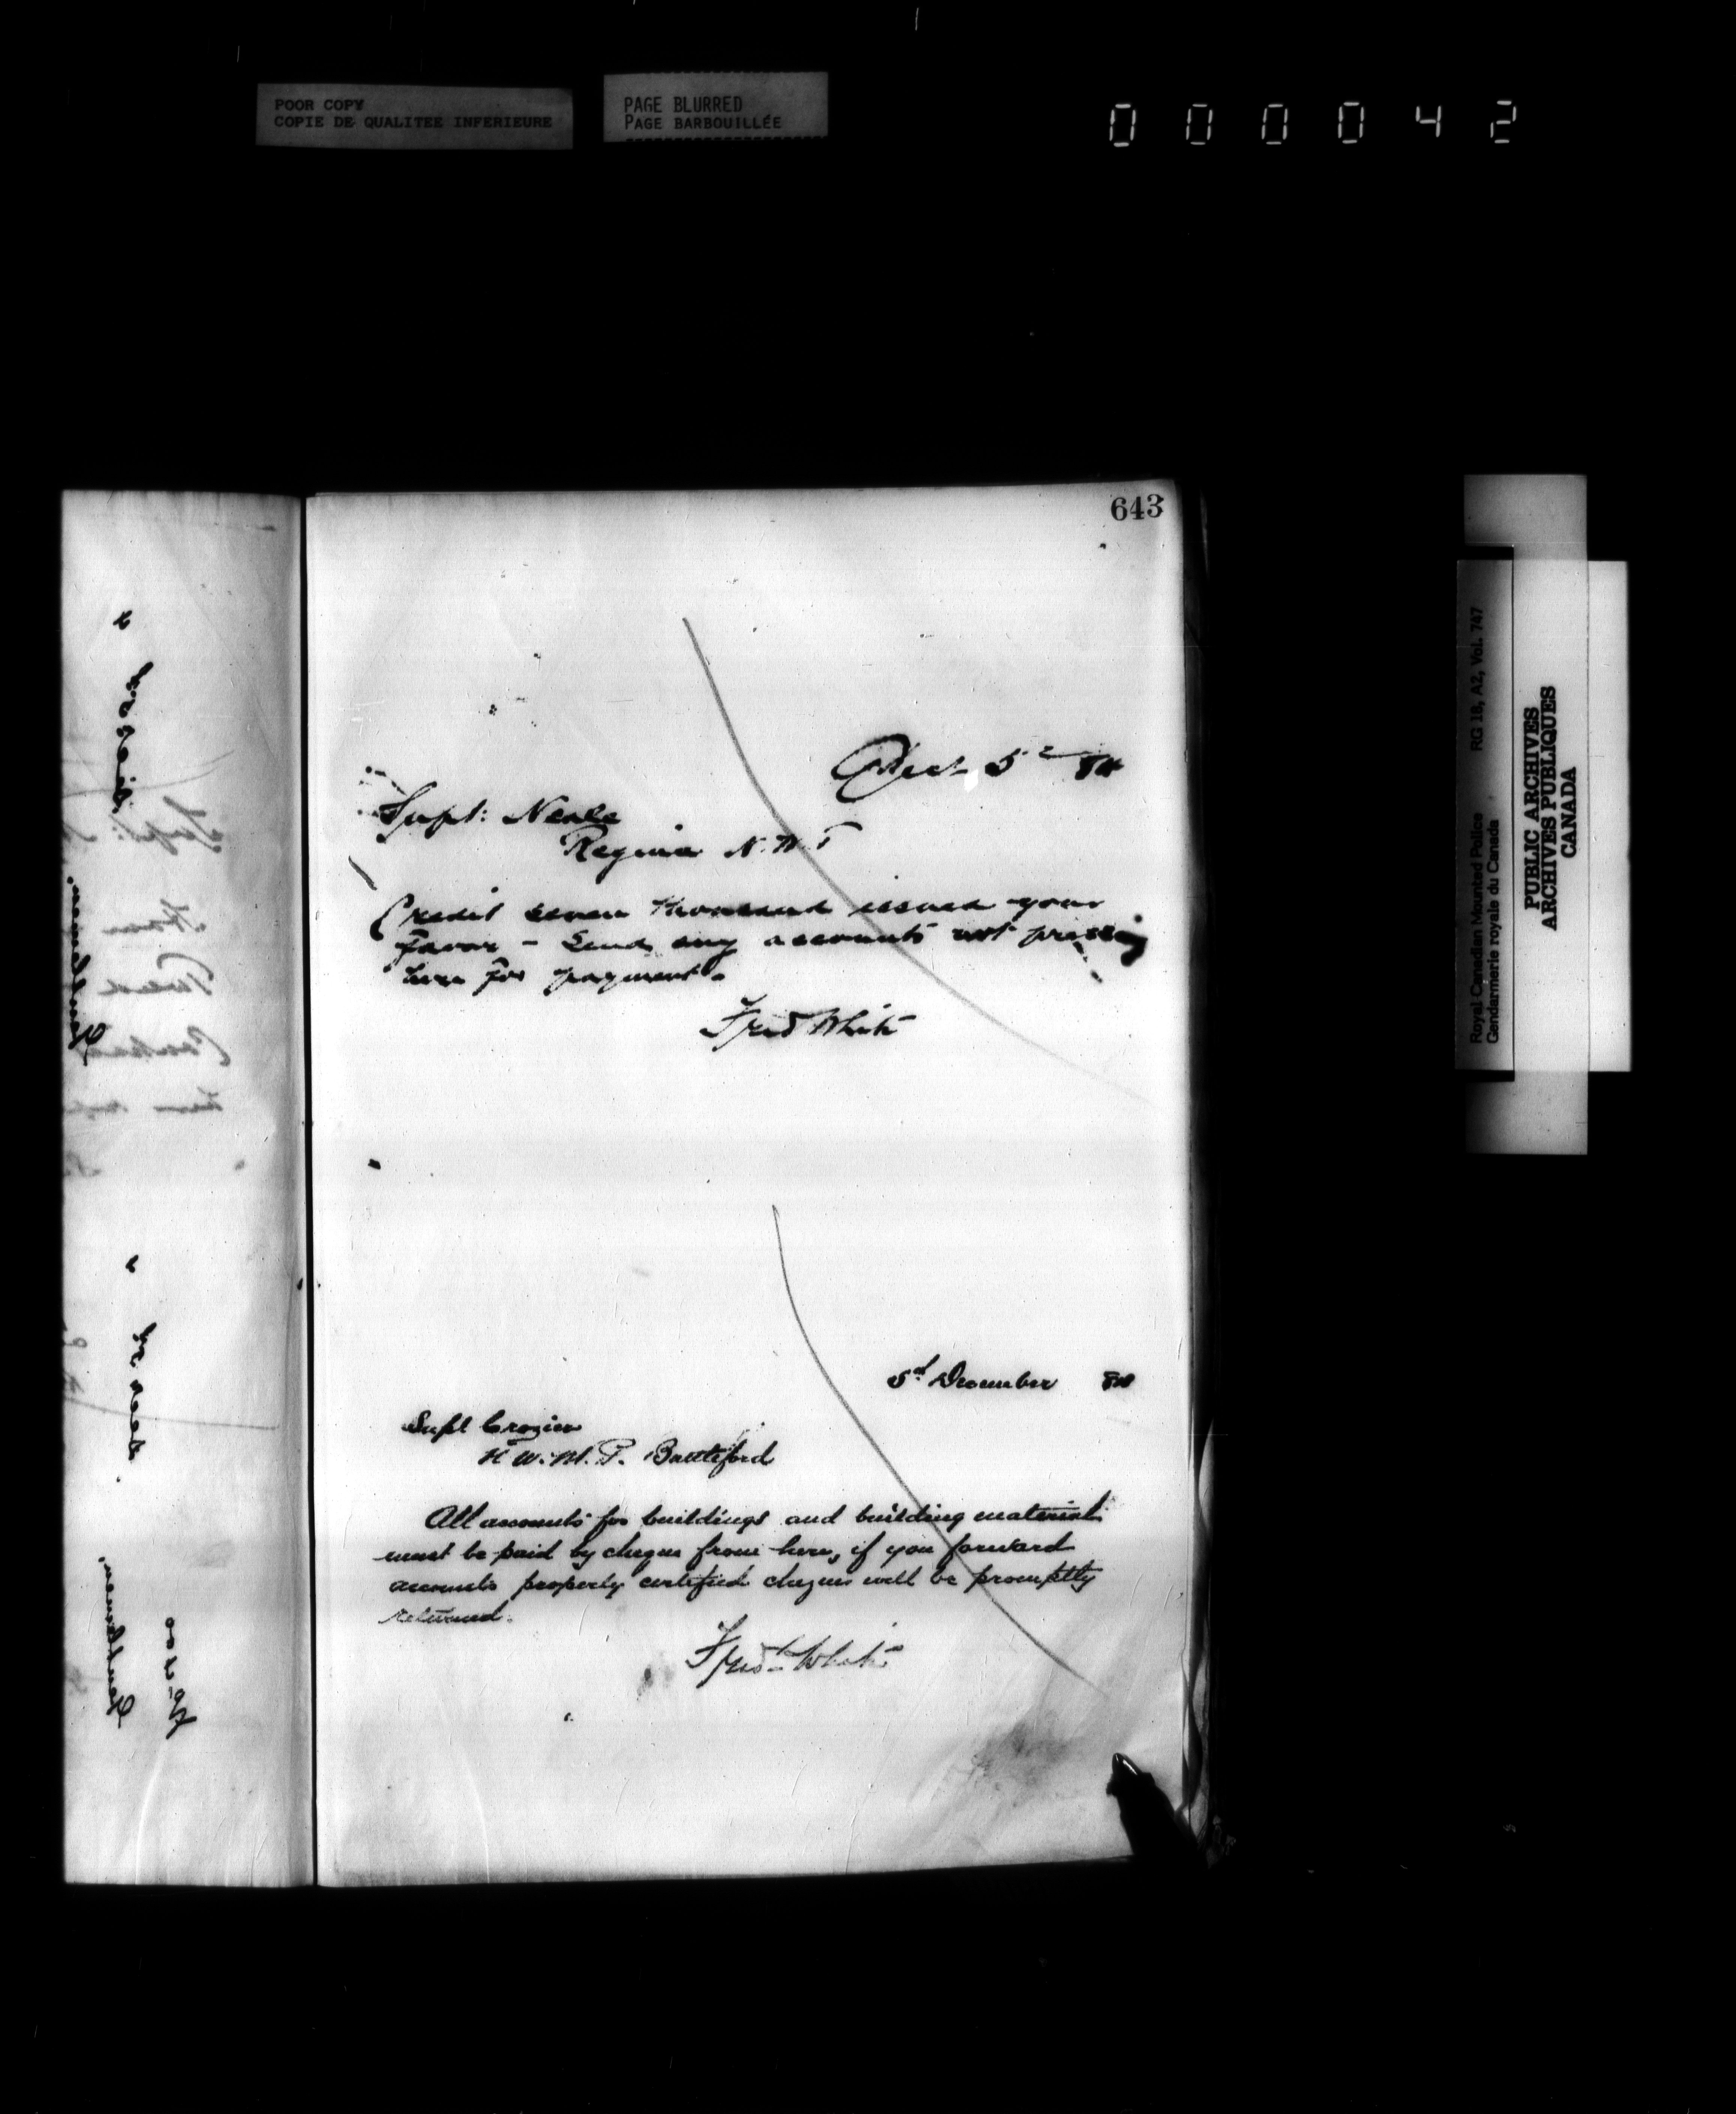 POOR COPY
COPIE DE QUALITEE INFERIEURE
PAGE BLURRED
PAGE BARBOUILLÉE
000042
643
Dect 5th 84
Supt: Neale
Regina N.W.T
Credit seven thousand issued your
favor - Send any accounts not pressing
here for payment.
Fred White
5th December 84
Supt Crozier
N.W.M.P. Battleford
All accounts for buildings and building material
must be paid by cheque from here, if you forward
accounts properly certified cheques will be promptly
returned.
Fred White
Gentlemen,
Gentlemen,
Royal Canadian Mounted Police RG 18, A2, Vol. 747
Gendarmerie royale du Canada
PUBLIC ARCHIVES
ARCHIVES PUBLIQUES
CANADA